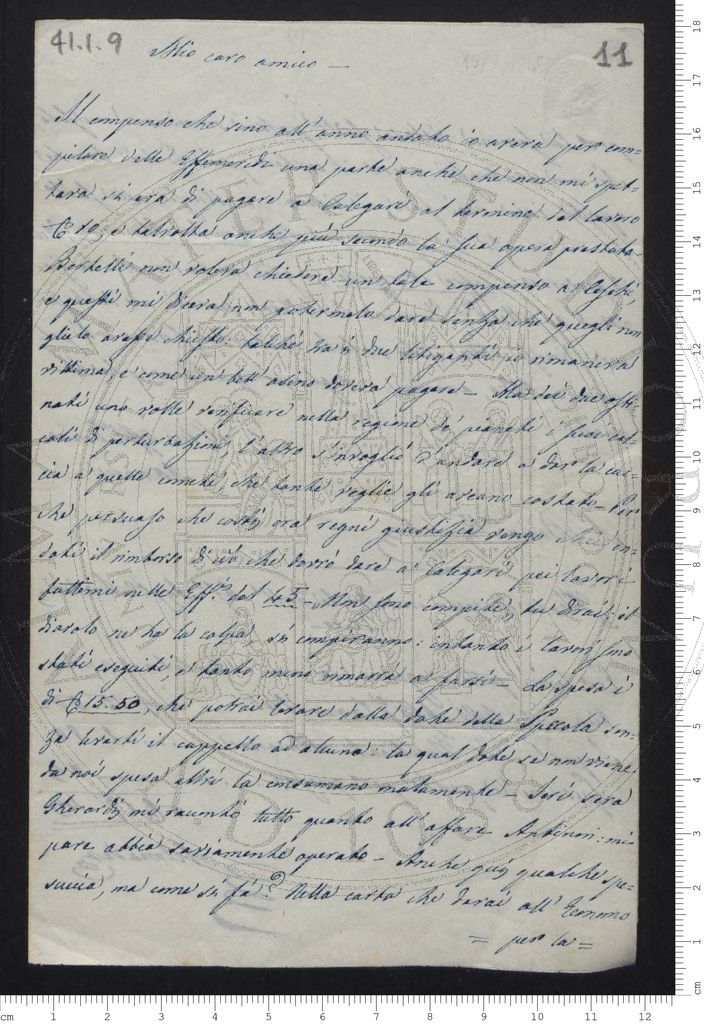 41.1.9
11
Mio caro amico —
Il compenso che sino all'anno andato io aveva per com-
pilare delle Effemeridi una parte anche che non mi spet-
tava si era di pagare a Calegari al termine del lavoro
10, e talvolta anche più secondo la sua opera prestata.
Bertelli non voleva chiedere un tale compenso a
e questi mi diceva non potermelo dare senza che quegli non
glielo avesse chiesto: talché tra i due litiganti io rimaneva
vittima, e come un bell'asino doveva pagare — Ma dei due osti-
nati uno volle verificare nella regione de' pianeti i suoi cal-
coli di perturbazioni, l'altro s'invogliò d'andare a dar la cac-
cia a quelle comete, che tante veglie gli aveano costate — Per-
che persuaso che costì ora regni giustizia vengo
il rimborso di ciò che dovrò dare a Calegari pei lavori
fattimi nelle Eff. del 45 — Non sono compite, tu dirai: il
diavolo ne ha la colpa, si compiranno: intanto i lavori sono
stati eseguiti e tanto meno rimarrà a farsi — La spesa è
di 15.50, che potrai levare dalla dote della Specola sen-
za levarti il cappello ad alcuno: la qual dote se non viene
da noi spesa altri la consumano malamente — Jeri sera
Gherardi mi raccontò tutto quanto all'affare Antinori: mi
pare abbia saviamente operato — Anche qui qualche spe-
succia, ma come si fa? Nella carta che darai all'Economo
= per la =